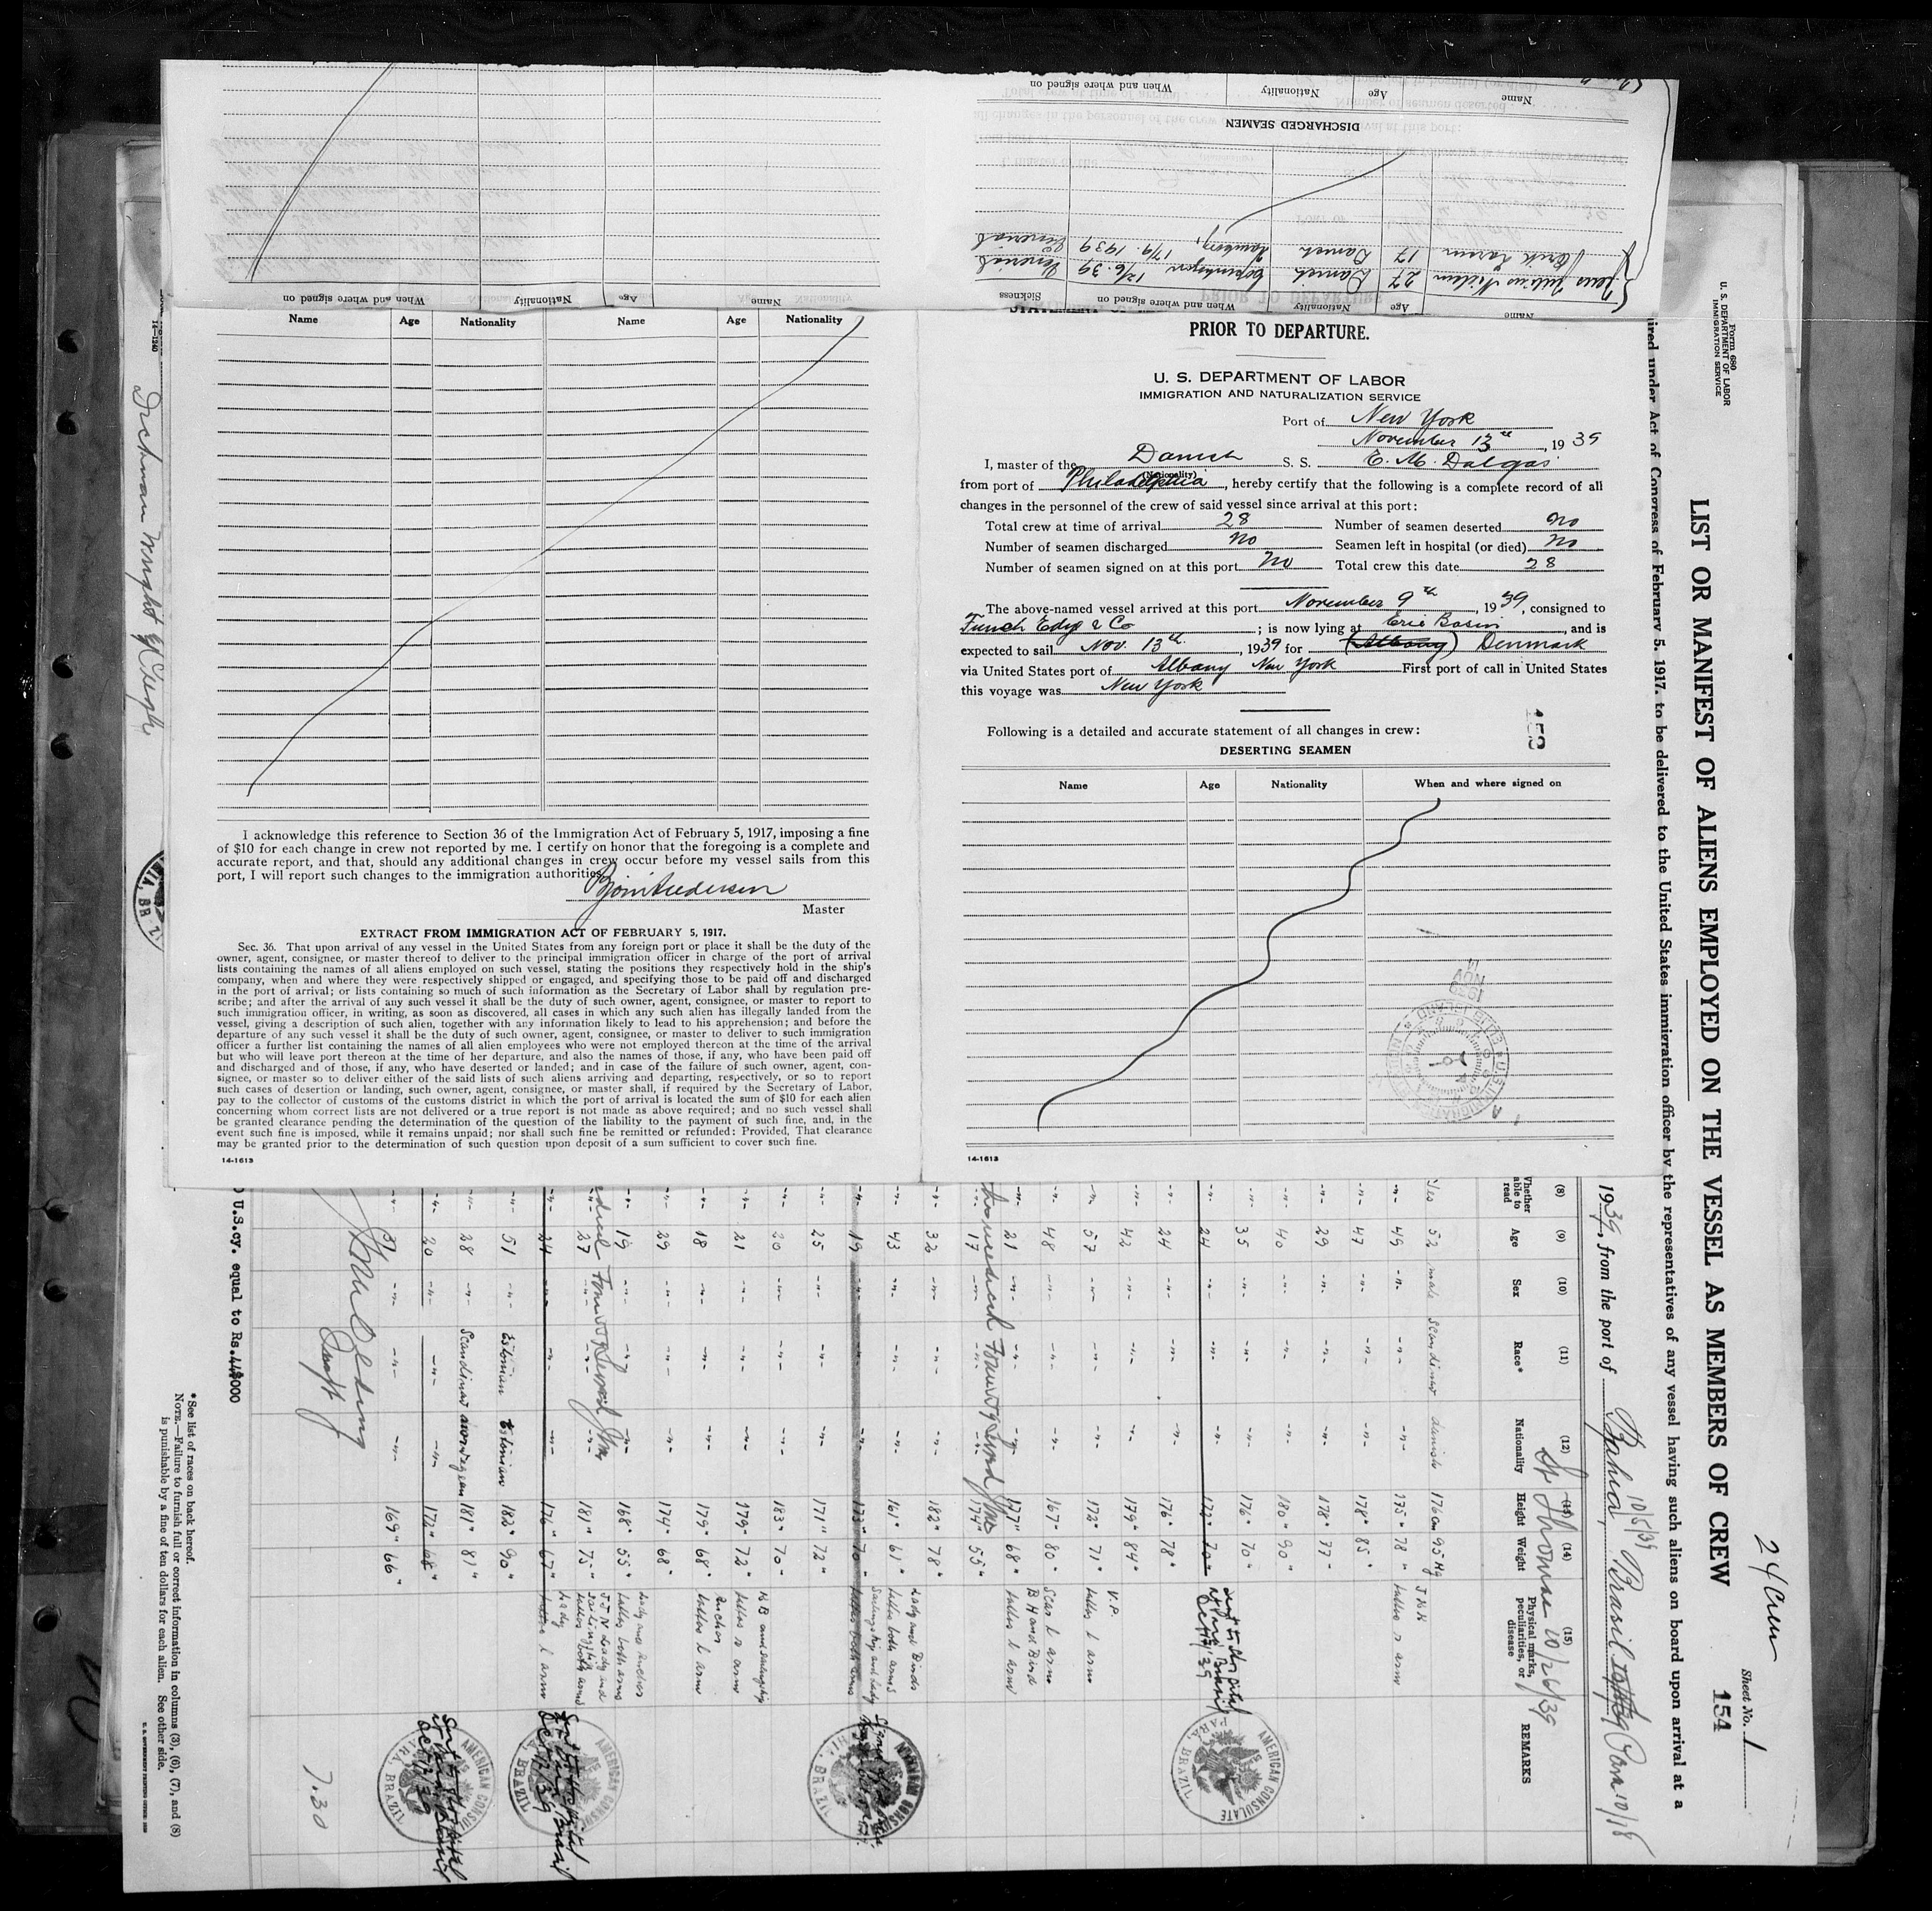 Name Age Nationality When and where signed on
DISCHARGED SEAMEN
27 Danish Copenhagen 12/6. 39
Erik Larsen 17 Danish Hamburg, 17/9. 1939
Name Age Nationality When and where signed on Sickness
Name Age Nationality When and where signed on
Name Age Nationality Name Age Nationality
I acknowledge this reference to Section 36 of the Immigration Act of February 5, 1917, imposing a fine
of $10 for each change in crew not reported by me. I certify on honor that the foregoing is a complete and
accurate report, and that, should any additional changes in crew occur before my vessel sails from this
port, I will report such changes to the immigration authorities.
Master
EXTRACT FROM IMMIGRATION ACT OF FEBRUARY 5, 1917.
Sec. 36. That upon arrival of any vessel in the United States from any foreign port or place it shall be the duty of the
owner, agent, consignee, or master thereof to deliver to the principal immigration officer in charge of the port of arrival
lists containing the names of all aliens employed on such vessel, stating the positions they respectively hold in the ship's
company, when and where they were respectively shipped or engaged, and specifying those to be paid off and discharged
in the port of arrival; or lists containing so much of such information as the Secretary of Labor shall by regulation pre-
scribe; and after the arrival of any such vessel it shall be the duty of such owner, agent, consignee, or master to report to
such immigration officer, in writing, as soon as discovered, all cases in which any such alien has illegally landed from the
vessel, giving a description of such alien, together with any information likely to lead to his apprehension; and before the
departure of any such vessel it shall be the duty of such owner, agent, consignee, or master to deliver to such immigration
officer a further list containing the names of all alien employees who were not employed thereon at the time of the arrival
but who will leave port thereon at the time of her departure, and also the names of those, if any, who have been paid off
and discharged and of those, if any, who have deserted or landed; and in case of the failure of such owner, agent, con-
signee, or master so to deliver either of the said lists of such aliens arriving and departing, respectively, or so to report
such cases of desertion or landing, such owner, agent, consignee, or master shall, if required by the Secretary of Labor,
pay to the collector of customs of the customs district in which the port of arrival is located the sum of $10 for each alien
concerning whom correct lists are not delivered or a true report is not made as above required; and no such vessel shall
be granted clearance pending the determination of the question of the liability to the payment of such fine, and, in the
event such fine is imposed, while it remains unpaid; nor shall such fine be remitted or refunded: Provided, That clearance
may be granted prior to the determination of such question upon deposit of a sum sufficient to cover such fine.
14-1613
PRIOR TO DEPARTURE.
U. S. DEPARTMENT OF LABOR
IMMIGRATION AND NATURALIZATION SERVICE
Port of New York
November 13th, 1939
I, master of the Danish S. S. E. M. Dalgas
(Nationality)
from port of Philadelphia, hereby certify that the following is a complete record of all
changes in the personnel of the crew of said vessel since arrival at this port:
Total crew at time of arrival 28 Number of seamen deserted no
Number of seamen discharged no Seamen left in hospital (or died) no
Number of seamen signed on at this port no Total crew this date 28
The above-named vessel arrived at this port November 9th, 1939, consigned to
Funch Edye & Co; is now lying at Erie Basin, and is
expected to sail Nov. 13th, 1939 for (Albany) Denmark
via United States port of Albany New York First port of call in United States
this voyage was New York
153
Following is a detailed and accurate statement of all changes in crew:
DESERTING SEAMEN
Name Age Nationality When and where signed on
1939 NOV
14-1613
Form 680
U. S. DEPARTMENT OF LABOR
IMMIGRATION SERVICE
24 Crew
Sheet No. 1
154
LIST OR MANIFEST OF ALIENS EMPLOYED ON THE VESSEL AS MEMBERS OF CREW
ired under Act of Congress of February 5, 1917, to be delivered to the United States immigration officer by the representatives of any vessel having such aliens on board upon arrival at a
1939, from the port of Bahia, Brasil 10/5/39 Para 10/18
St Thomas 10/26/39
(8) (9) (10) (11) (12) (13) (14) (15)
Whether able to read Age Sex Race* Nationality Height Weight Physical marks, peculiarities, or disease REMARKS
Yes 52 male scandinav danish 176 cm 95 Kg
-"- 49 -"- -"- -"- 175" 78" tattoo r arm
-"- 47 -"- -"- -"- 178" 85"
-"- 29 -"- -"- -"- 178" 77"
-"- 40 -"- -"- -"- 180" 90"
-"- 35 -"- -"- -"- 176" 70"
-"- 24 -"- -"- -"- 172" 70"
AMERICAN CONSULATE PARA, BRAZIL
-"- 24 -"- -"- -"- 176" 78"
-"- 42 -"- -"- -"- 179" 84"
-"- 57 -"- -"- -"- 172" 71" V.P. tattoo l arm
-"- 48 -"- -"- -"- 167" 80" Scar l arm
-"- 21 -"- -"- -"- 177" 68" B H and Bird tattoo l arm
-"- 17 -"- -"- -"- 174" 55"
-"- 32 -"- -"- -"- 182" 78"
-"- 43 -"- -"- -"- 161" 61" Lady and Birds tattoo both arms
-"- 19 -"- -"- -"- 173" 70" Sailingship and lady tattoo both arms
-"- 25 -"- -"- -"- 171" 72"
-"- 20 -"- -"- -"- 183" 70"
-"- 21 -"- -"- -"- 179" 72" H B and sailingship tattoo r arm
-"- 18 -"- -"- -"- 179" 68" Anchor tattoo l arm
-"- 29 -"- -"- -"- 174" 68"
-"- 19 -"- -"- -"- 168" 55" Lady and anchor tattoo both arms
-"- 27 -"- -"- -"- 181" 75"
-"- 24 -"- -"- -"- 176" 67" Lady tattoo l arm
-"- 51 -"- Estonian Estonian 182" 90"
-"- 28 -"- Scandinav norvegean 181" 81"
-"- 20 -"- -"- -"- 172" 68"
-"- 31 -"- -"- -"- 169" 66"
7.30
U.S.cy. equal to Rs.
*See list of races on back hereof.
NOTE.—Failure to furnish full or correct information in columns (3), (6), (7), and (8)
is punishable by a fine of ten dollars for each alien. See other side.
14-1240